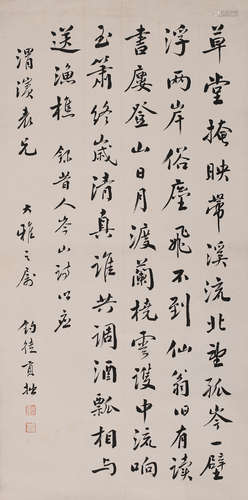 草堂掩映带溪流北望孤岑一壁
浮两岸俗尘飞不到仙翁旧有读
书廔登山日月渡兰桡云护中流响
玉箫终岁清真谁共调酒瓢相与
送渔樵 録昔人岑山诗以应
渭滨表兄
大雅之属 钧德贡拙